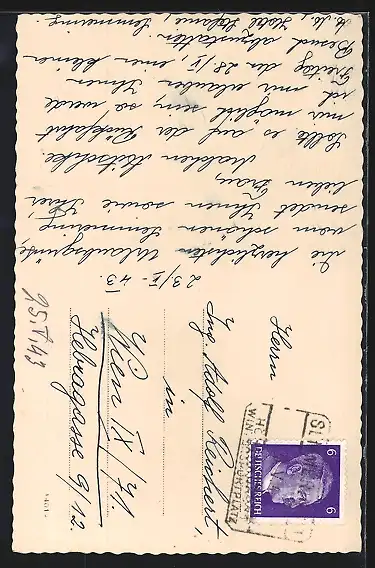 23/V. 43.
Die herzlichsten Urlaubsgrüße,
vom schönen Semmering
sendet Ihnen sowie Ihrer
lieben Frau,
Sollte es auf der Rückfahrt
mir möglich sein, so werde
ich mir erlauben Ihnen
Freitag den 28/V, einen kleinen
Besuch abzustatten.
Hotel Stefanie, Semmering
Herrn
Ing. Adolf Reinhert,
in
Wien IX/71.
Hebragasse 9/12.
25.V.43
DEUTSCHES REICH
6 6